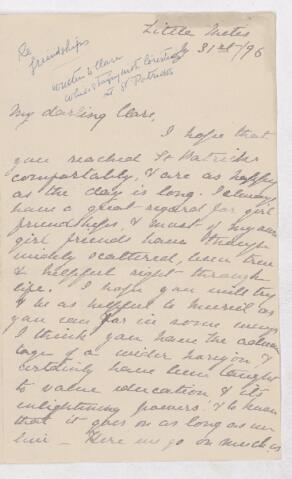 Re
friendships
written to Clare
when staying with
at St Patricks
Little Metis
31st/96
My darling Clare,
I hope that
you reached St Patricks
comfortably, & are as happy
as the day is long. I always
have a great regard for girl
friendships, & most of my own
girl friends have though
widely scattered, been true
& helpful right through
life. I hope you will try
& be as helpful to Muriel as
you can for in some ways
I think you have the advan
tage of a wider horizon &
certainly have been taught
to value education & its
enlightening powers & to know
that it goes on as long as we
live — Here we go on much as